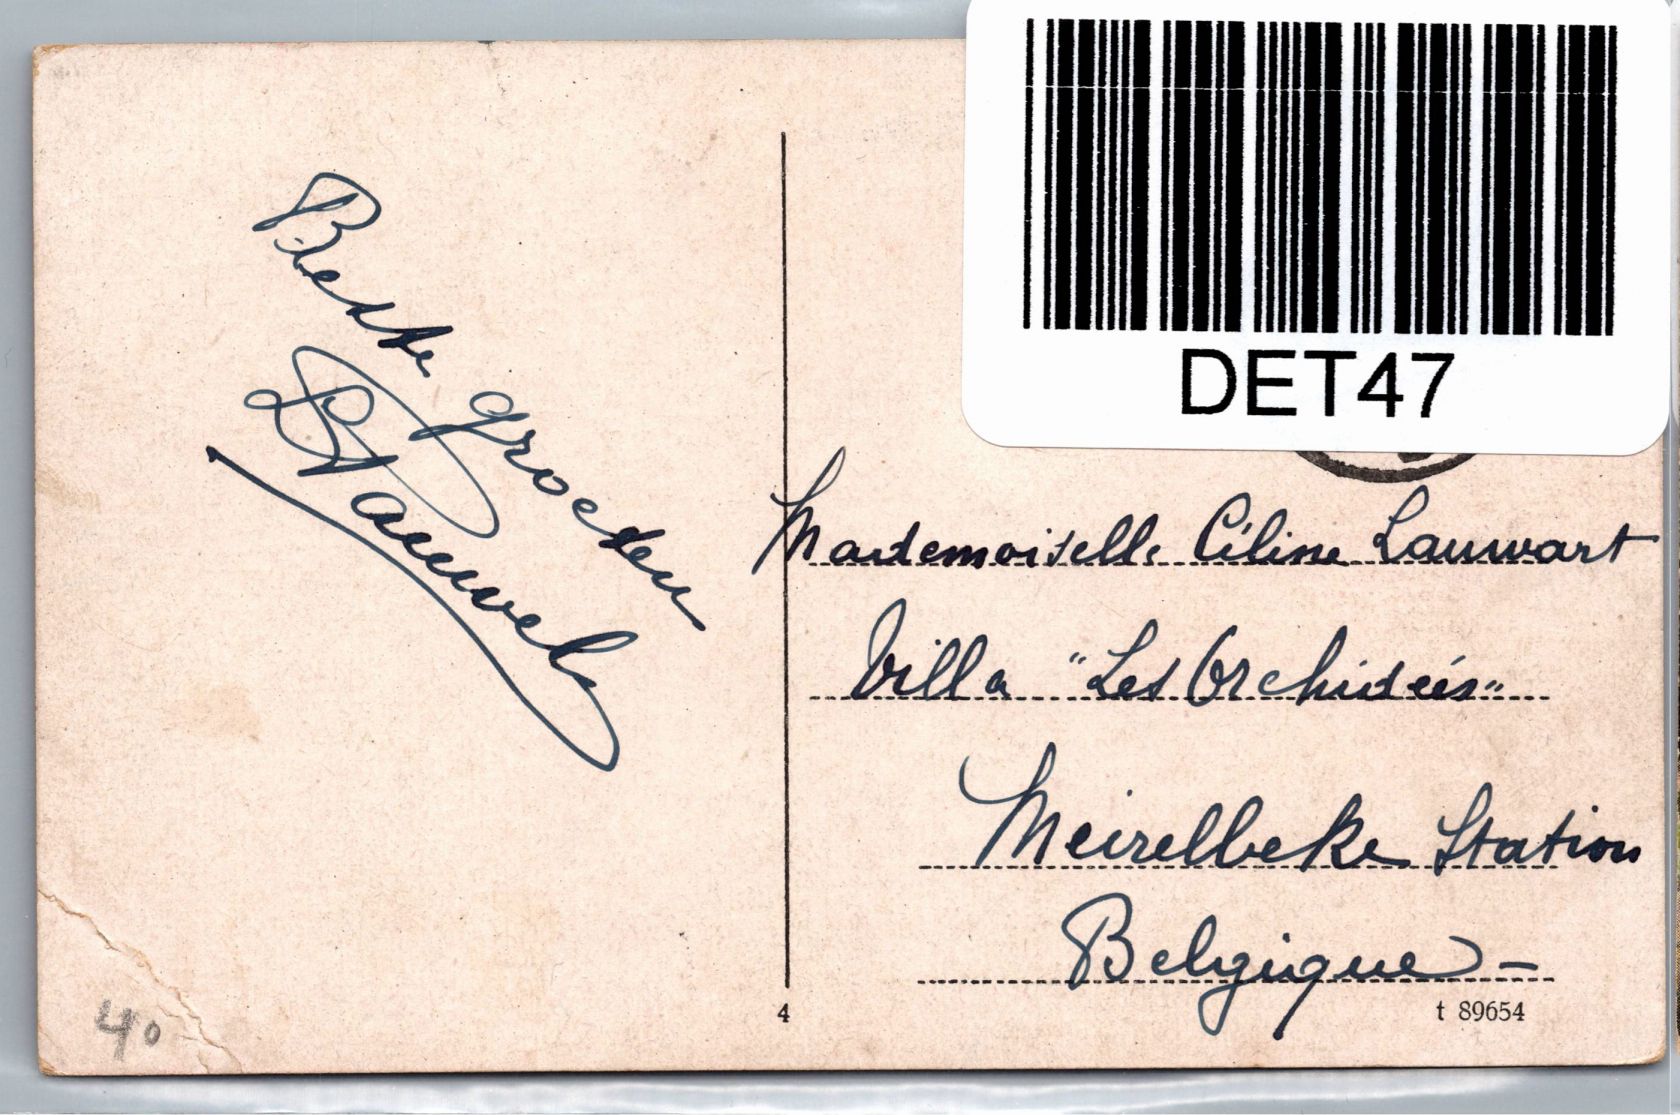 DET47
Beste groeten
Pauwels
Mademoiselle Céline Lauwart
Villa "Les Orchidées"
Meirelbeke Station
Belgique -
4
t 89654
40